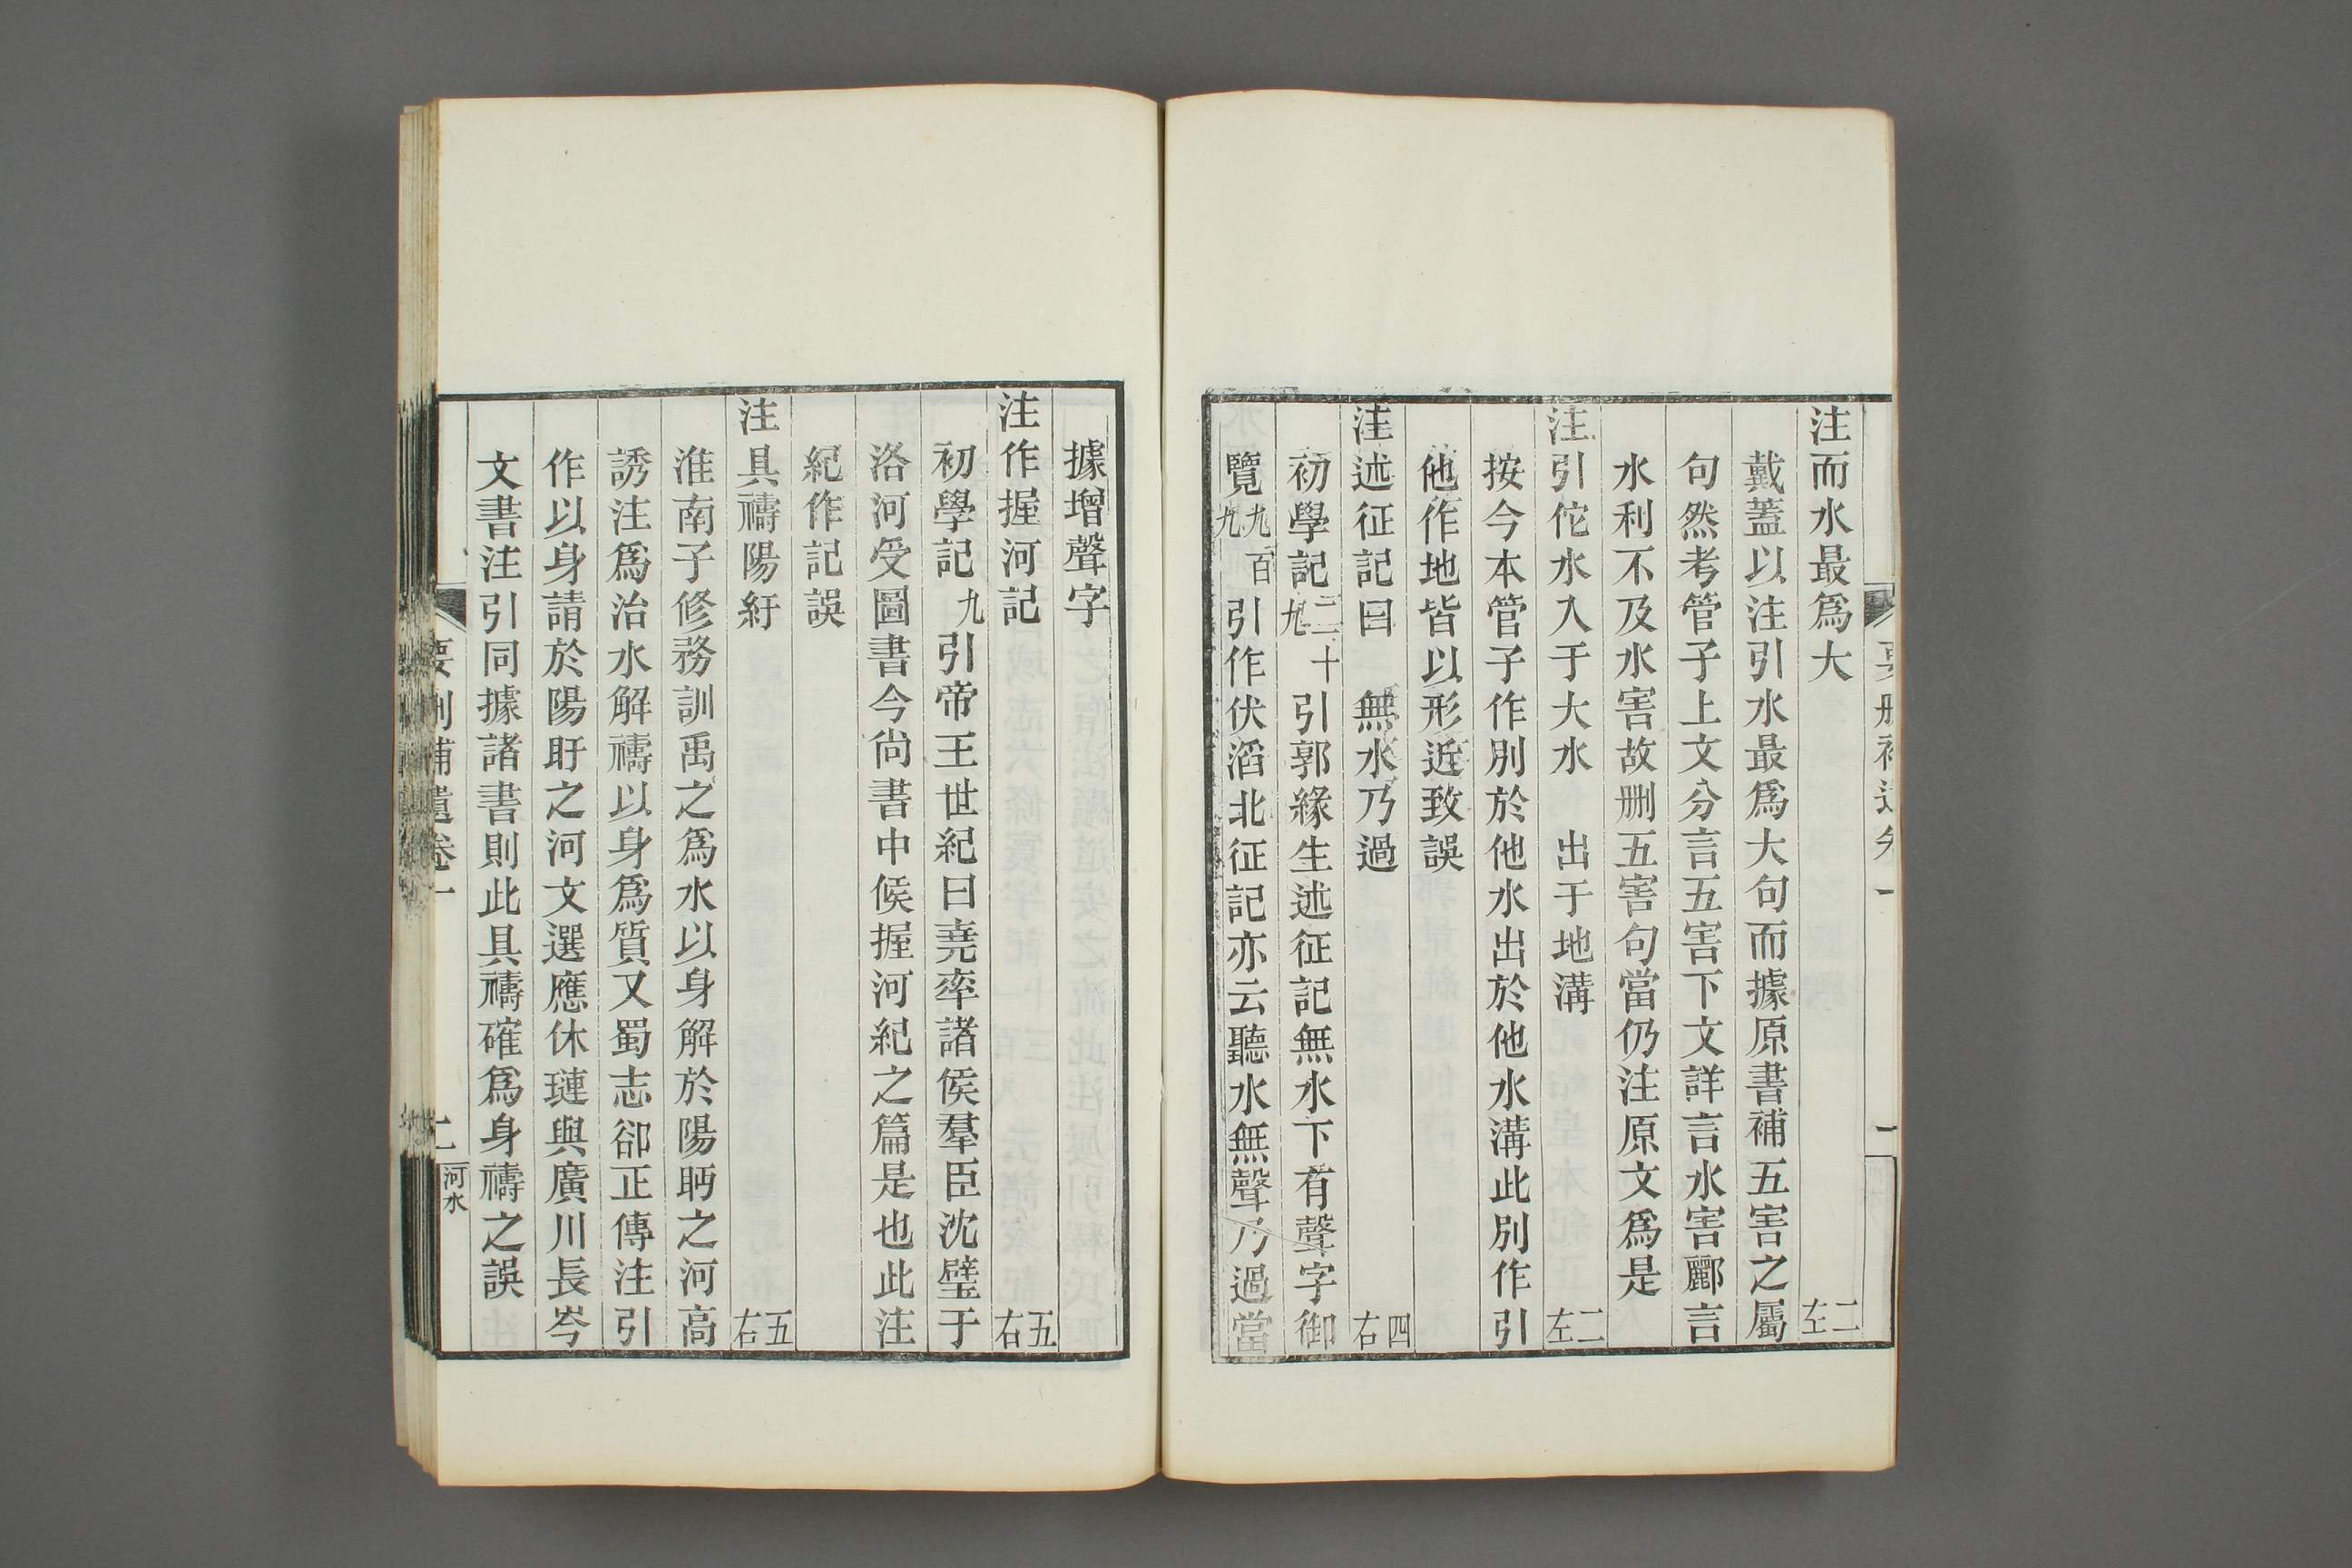 注而水最爲大 二左
戴蓋以注引水最爲大句而據原書補五害之屬
句然考管子上文分言五害下文詳言水害酈言
水利不及水害故刪五害句當仍注原文爲是
注引佗水入于大水 出于地溝 二左
按今本管子作別於他水出於他水溝此別作引
他作地皆以形近致誤
注述征記曰 無水乃過 四右
初學記二十九引郭緣生述征記無水下有聲字御
覽九百九引作伏滔北征記亦云聽水無聲乃過當
據增聲字
注作握河記 五右
初學記九引帝王世紀曰堯率諸侯羣臣沈璧于
洛河受圖書今尙書中候握河紀之篇是也此注
紀作記誤
注具禱陽紆 五右
淮南子修務訓禹之爲水以身解於陽眄之河高
誘注爲治水解禱以身爲質又蜀志郤正傳注引
作以身請於陽盱之河文選應休璉與廣川長岑
文書注引同據諸書則此具禱確爲身禱之誤
要刪補遺卷一 二 河水